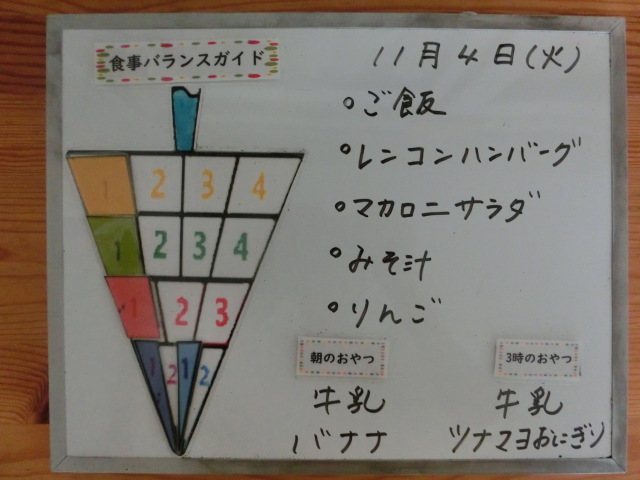 食事バランスガイド
11月4日(火)
1 2 3 4
1 2 3 4
1 2 3
1 2 1 2
ご飯
レンコンハンバーグ
マカロニサラダ
みそ汁
りんご
朝のおやつ
牛乳
バナナ
3時のおやつ
牛乳
ツナマヨおにぎり